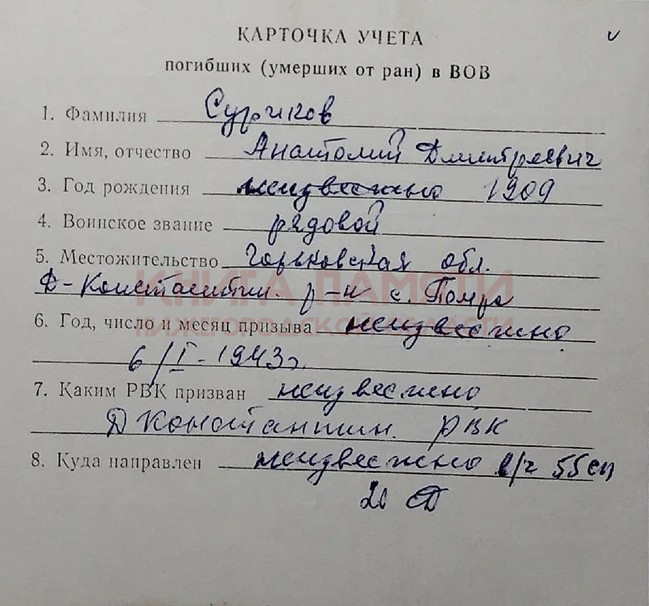 КАРТОЧКА УЧЕТА
погибших (умерших от ран) в ВОВ
1. Фамилия Суриков
2. Имя, отчество Анатолий Дмитриевич
3. Год рождения неизвестно 1909
4. Воинское звание рядовой
5. Местожительство Горьковская обл.
Д-Константин. р-н с. Помра
КНИГА ПАМЯТИ
6. Год, число и месяц призыва неизвестно
НИЖЕГОРОДСКОЙ ОБЛАСТИ
6/I-1943г.
7. Каким РВК призван неизвестно
Д Константин. РВК
8. Куда направлен неизвестно в/ч 55сп
20 СД